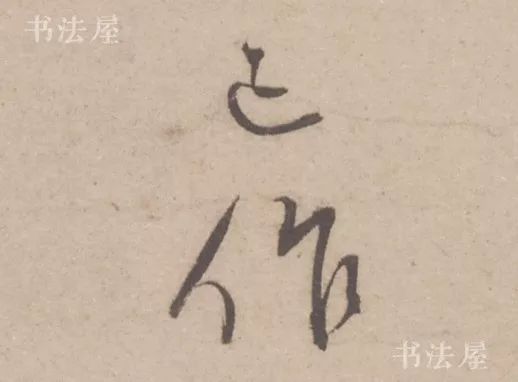 书法屋
已作
书法屋